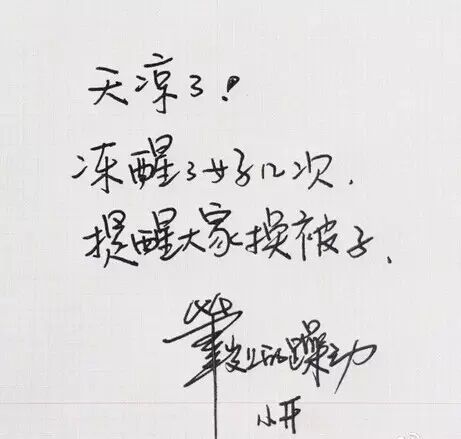 天凉了!
冻醒了好几次.
提醒大家换被子.
笔尖上的躁动
小开